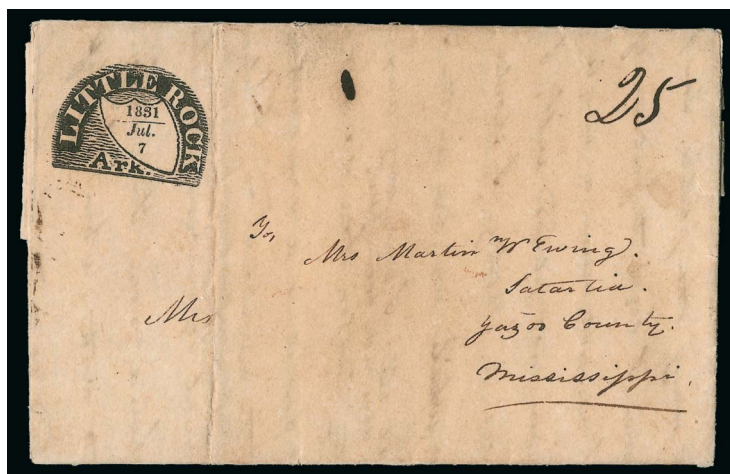 LITTLE ROCK
1831
Jul.
7
Ark.
25
To,
Mrs Martin W Ewing.
Satartia.
Yazoo County.
Mississippi.
Mrs